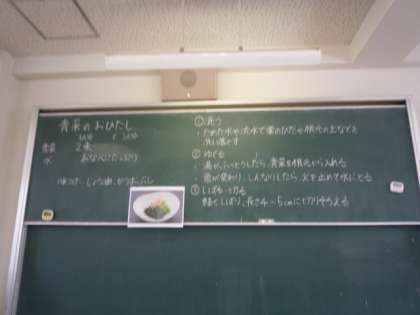 青菜のおひたし
青菜 2束
水
味つけ…しょうゆ、かつおぶし
①洗う
・ためた水や流水で葉のひだや根元の土などを
洗い落とす
②ゆでる
・湯がふっとうしたら、青菜を根元から入れる
・色が変わり、しんなりしたら、火を止めて水にとる
③しぼる・切る
軽くしぼり、長さ4~5cmに切りそろえる